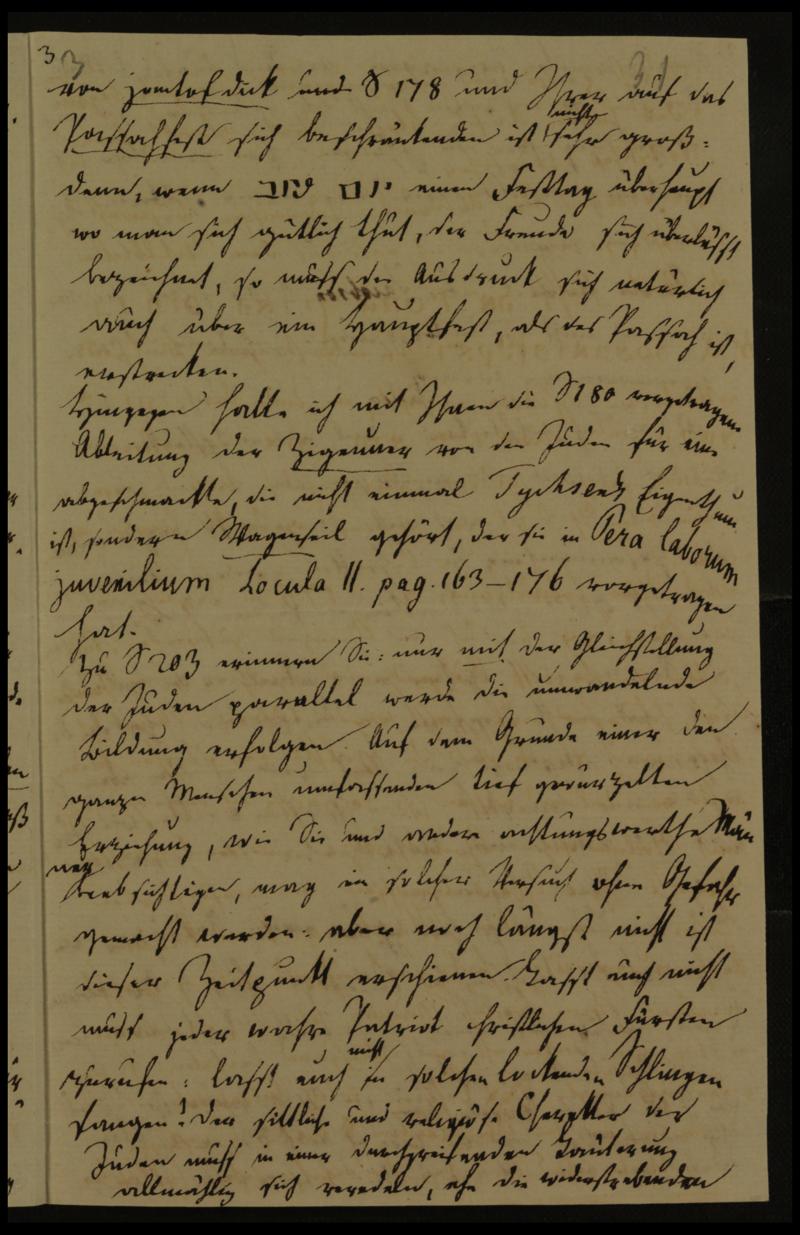 3
von jomtofdick und § 178 und Ihrer auf das
Passahfest sich beschränkenden ist nicht sehr groß:
denn, wenn יום טוב einen Festtag überhaupt
wo man sich gütlich thut, der Freude sich überlässt
bezeichnet, so muss der Ausdruck sich natürlich
auch über ein Hauptfest, als das Passah ist,
erstrecken.
Hingegen halte ich mit Ihnen die § 180 vorgetragene
Ableitung der Zigeuner von den Juden für eine
abgeschmackte, die nicht einmal Tychsens Eigenthum
ist, sondern Wagenseil gehört, der sie in Pera laborum
juvenilium Locula II. pag. 163–176 vorgetragen
hat.
Zu § 203 erinnern Sie: nur mit der Gleichstellung
der Juden parallel werde die umwandelnde
Bildung erfolgen. Auf dem Grunde einer den
ganzen Menschen umfassenden tief gewurzelten
Erziehung, wie Sie und andere achtungswerthe Män
ner beabsichtigen, mag ein solcher Versuch ohne Gefahr
gemacht werden: aber noch längst nicht ist
dieser Zeitpunkt erschienen. Lasst euch nicht
muss jeder wahre Patriot christlichen Fürsten
zurufen: lasst euch nicht in solchen lockenden Schlingen
fangen! Der sittliche und religiöse Charakter der
Juden muss in einer durchgreifenden Läuterung
allmählig sich veredeln, ehe die widerstrebenden